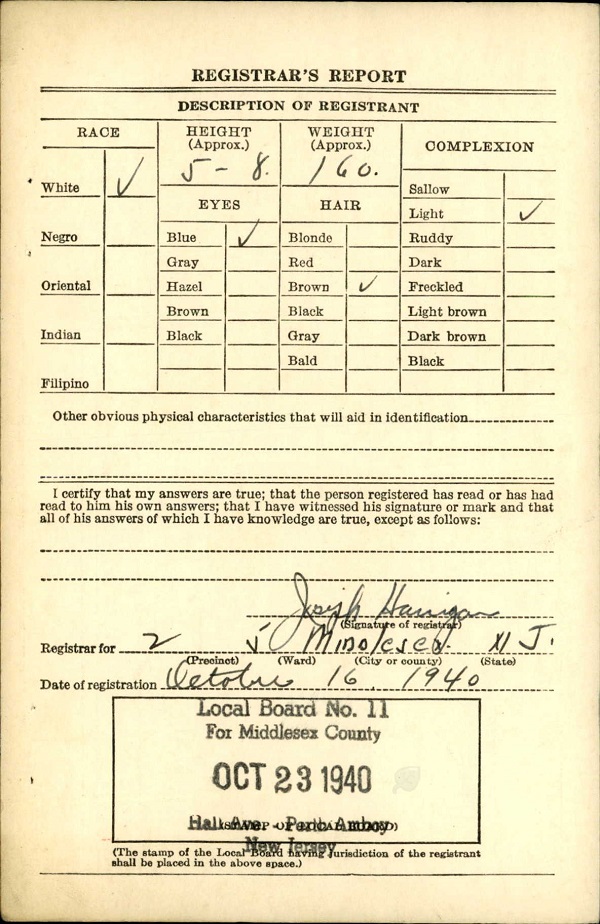 REGISTRAR'S REPORT
DESCRIPTION OF REGISTRANT
RACE
HEIGHT (Approx.)
WEIGHT (Approx.)
COMPLEXION
5 - 8.
160.
White ✓
Sallow
EYES
HAIR
Light ✓
Negro
Blue ✓
Blonde
Ruddy
Gray
Red
Dark
Oriental
Hazel
Brown ✓
Freckled
Brown
Black
Light brown
Indian
Black
Gray
Dark brown
Bald
Black
Filipino
Other obvious physical characteristics that will aid in identification
I certify that my answers are true; that the person registered has read or has had
read to him his own answers; that I have witnessed his signature or mark and that
all of his answers of which I have knowledge are true, except as follows:
Joseph Hanigan
(Signature of registrar)
Registrar for 2 5 Middlesex N J.
(Precinct) (Ward) (City or county) (State)
Date of registration October 16, 1940
Local Board No. 11
For Middlesex County
OCT 23 1940
Hall Ave. Perth Amboy
(STAMP OF LOCAL BOARD)
New Jersey
(The stamp of the Local Board having jurisdiction of the registrant
shall be placed in the above space.)